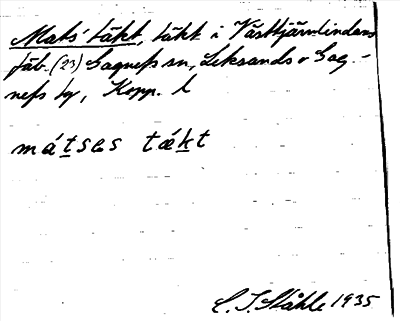 Mats' täkt, täkt i Västtjärnlindans
fäb. (23) Sagnefs sn, Leksands o Gag-
nefs tg, Kopp. l
mátses täkt
C. I. Ståhle 1935